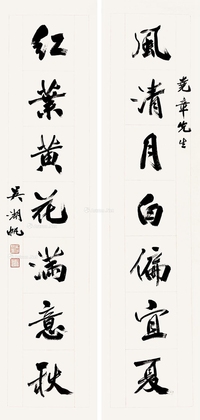 風清月白偏宜夏
堯章先生
紅葉黃花滿意秋
吳湖帆